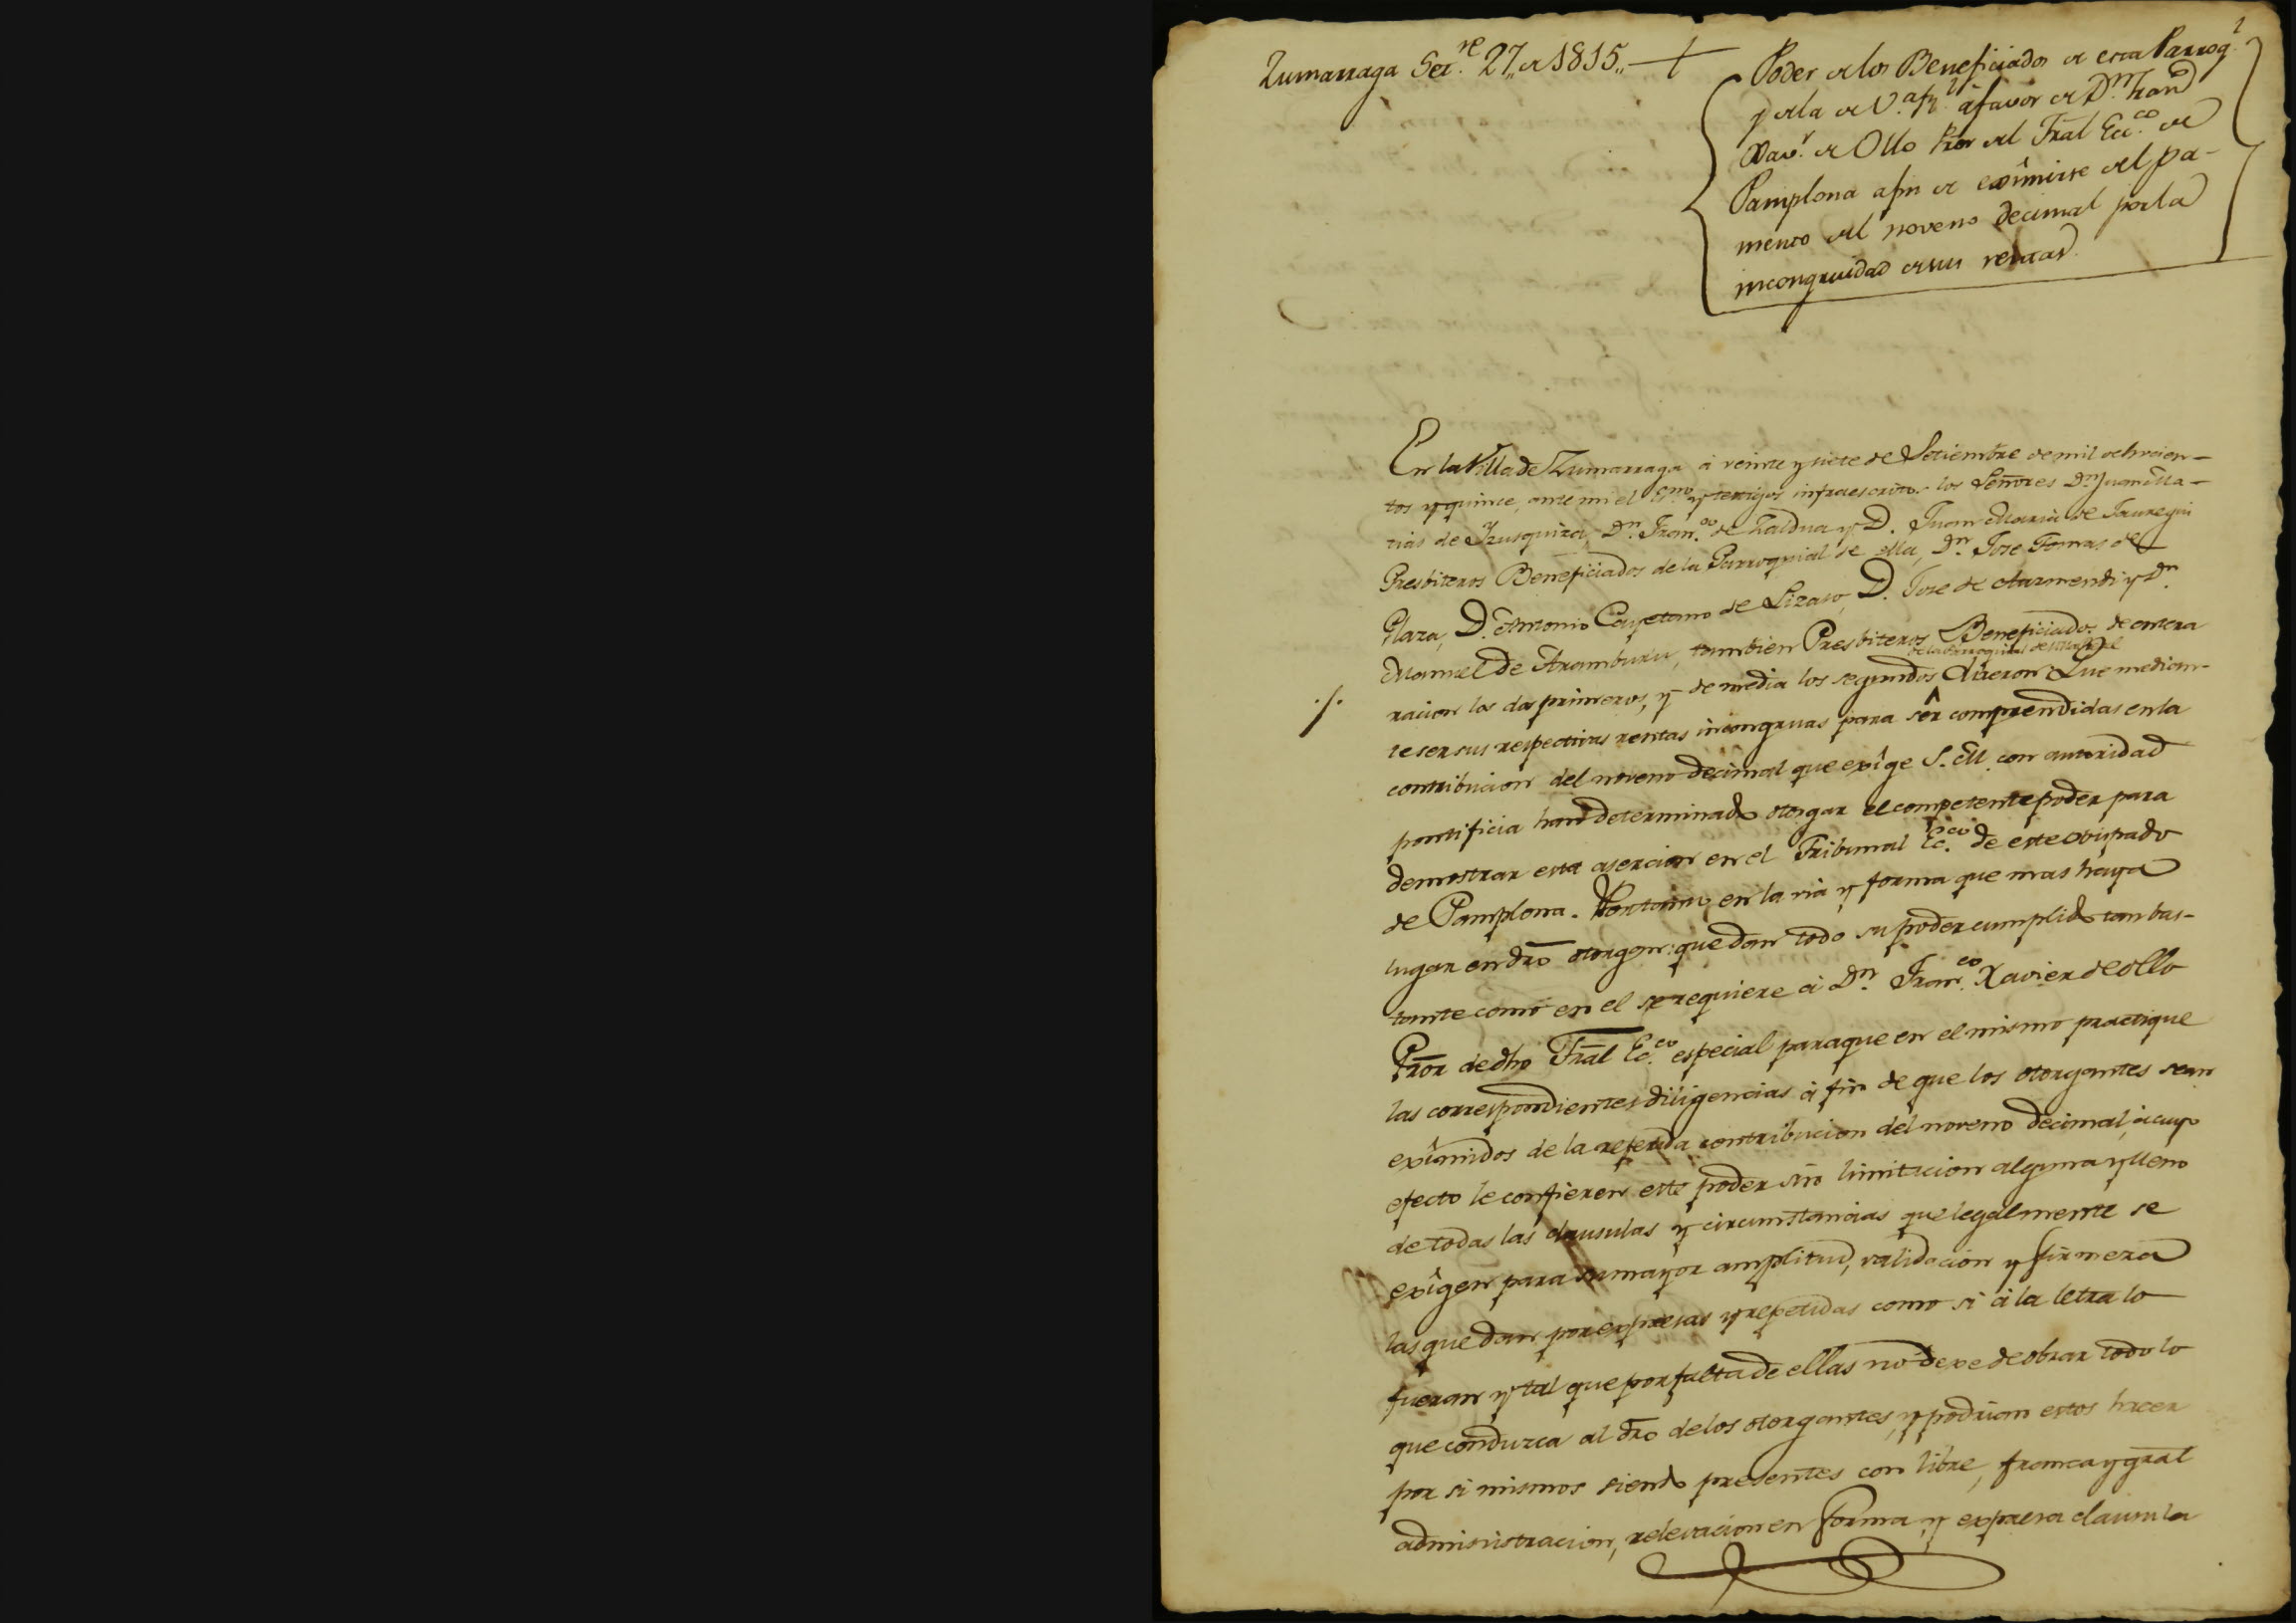 Zumarraga Set.re 27,, de 1815,,
1
Poder de los Beneficiados de esta Parroq.l
y de la de V.a afavor de D.n Fran.co
Xav.r de Ollo Pror del Tral Ecc.co de
Pamplona afin de exîmirse del pa-
mento del noveno decimal por la
incongruidad de sus rentas.
En la Villa de Zumarraga à veinte y siete de Setiembre de mil ochocien-
tos y quince, ante mi el Es.no y testigos infraescritos los Señores D.n Juan Ma-
tias de Yzusquiza, D.n Fran.co de Zaldua y D. Juan Maria de Jauregui
Presbiteros Beneficiados de la Parroquial de ella, D.n Jose Tomas de
Plaza, D. Antonio Cayetano de Lizaso, D. Jose de Aarmendi y D.n
Manuel de Aramburu, tambien Presbiteros Beneficiados de entera
de la Parroquial de
racion los dos primeros, y de media los segundos, dixeron: Que median-
te ser sus respectivas rentas incongruas para sêr comprendidas en la
contribucion del noveno decimal que exîge S. M. con autoridad
pontificia han determinado otorgar el competente poder para
demostrar esta asercion en el Tribunal Ec.co de este obispado
de Pamplona. Por tanto en la via y forma que mas haya
lugar en dro otorgan: que dan todo su poder cumplido tan bas-
tante como en el se requiere à D.n Fran.co Xavier de Ollo
Pror de dho Tral Ec.co especial para que en el mismo practique
las correspondientes diligencias à fin de que los otorgantes sean
exîmidos de la referida contribucion del noveno decimal, à cuyo
efecto le confieren este poder sin limitacion alguna y lleno
de todas las clausulas y circunstancias que legalmente se
exîgen para su mayor amplitud, validacion y firmeza
las que dan por expresas y repetidas como si à la letra lo
fueran y tal que por falta de ellas no dexe de obrar todo lo
que conduzca al dro de los otorgantes, y podrian estos hacer
por si mismos siendo presentes con libre, franca y gral
administracion, relevacion en forma, y expresa clausula